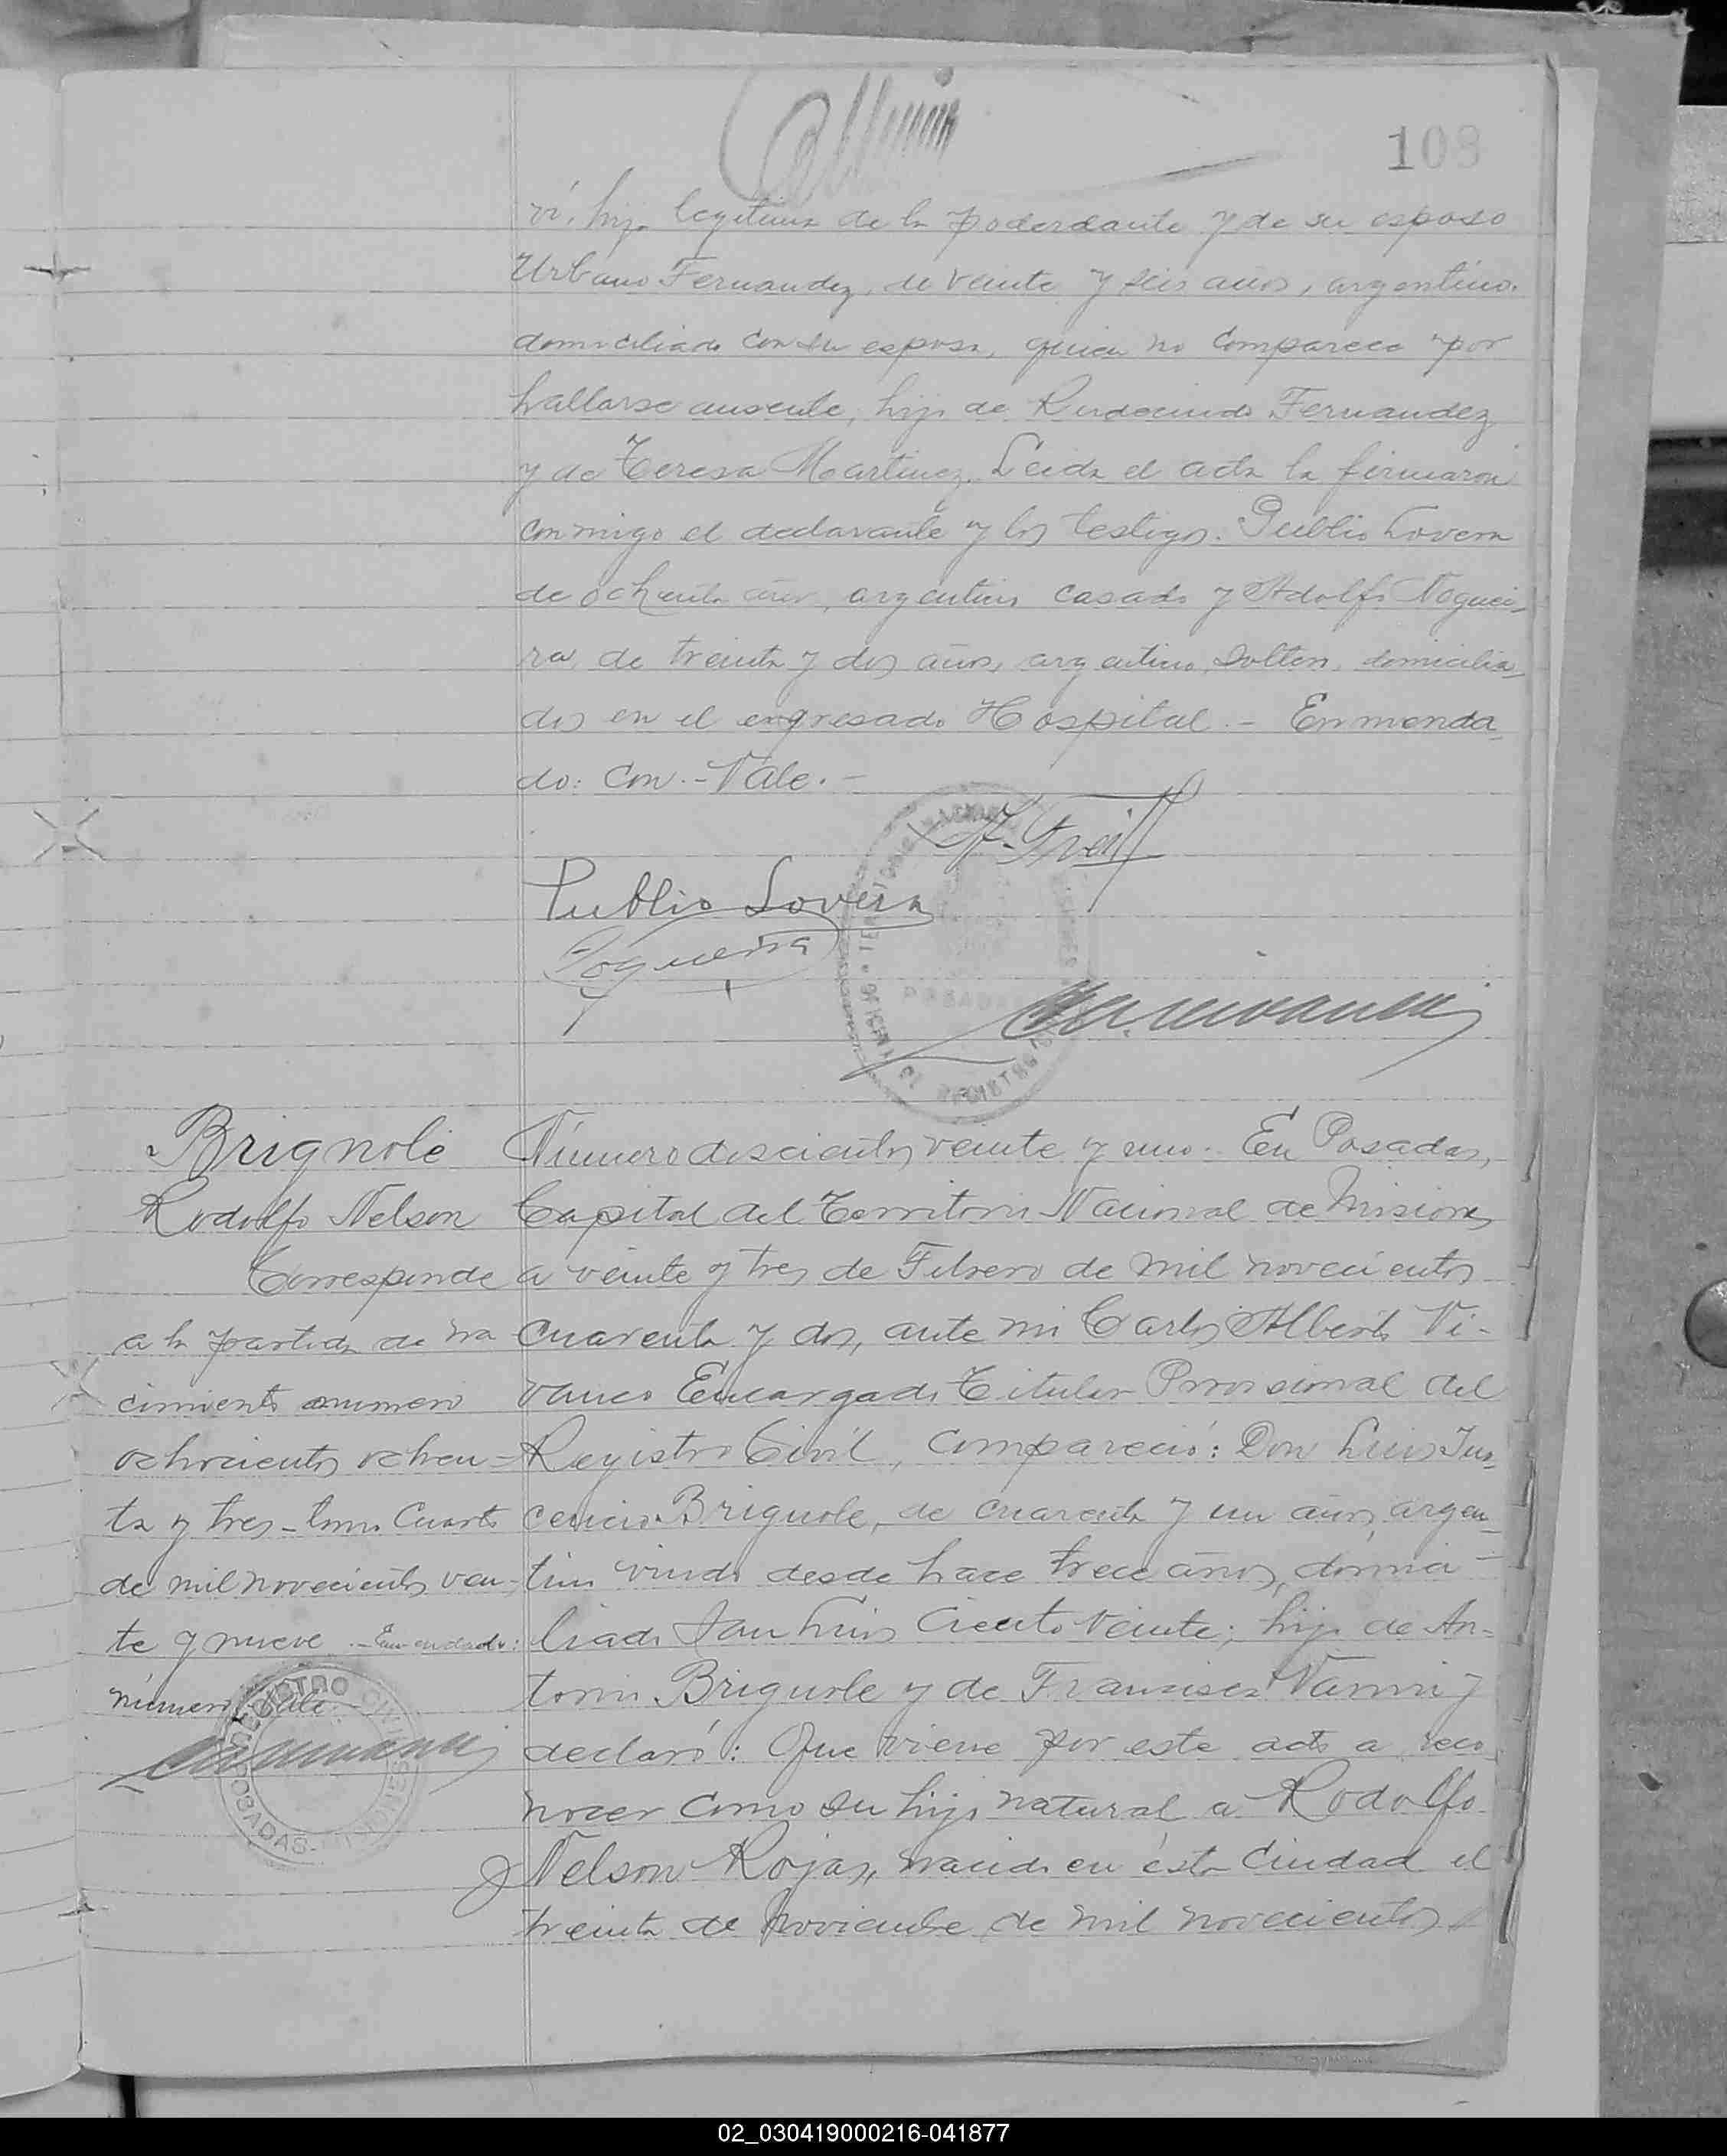 108
ví, hijo legitimo de la poderdante y de su esposo
Urbano Fernandez, de veinte y seis años, argentino,
domiciliado con su esposa, quien no comparece por
hallarse ausente, hijo de Rudecindo Fernandez
y de Teresa Martinez. Leida el acta la firmaron
conmigo el declarante y los testigos. Publio Lovera
de ochenta años, argentino casado y Adolfo Noguei-
ra, de treinta y dos años, argentino, soltero, domicilia-
dos en el expresado Hospital. - Enmenda-
do: con. - Vale. -
Publio Lovera
Nogueira
Brignole
Rodolfo Nelson
Corresponde
a la partida de na
cimiento número
ochocientos ochen-
ta y tres - tomo Cuarto
de mil novecientos vein-
te y nueve. - Enmendado:
número Vale -
REGISTRO CIVIL
POSADAS
Número doscientos veinte y uno. En Posadas,
Capital del Territorio Nacional de Misiones
a veinte y tres de Febrero de mil novecientos
cuarenta y dos, ante mi Carlos Alberto Vi-
vanco Encargado Titular Provisional del
Registro Civil, compareció: Don Luis Ino-
cencio Brignole, de cuarenta y un años, argen-
tino viudo desde hace trece años, domici-
liado San Luis Ciento veinte; hijo de An-
tonio Brignole y de Francisca Vanini y
declaró: Que viene por este acto a reco-
nocer como su hijo natural a Rodolfo
Nelson Rojas, nacido en ésta Ciudad el
treinta de Noviembre de mil novecientos
02_030419000216-041877